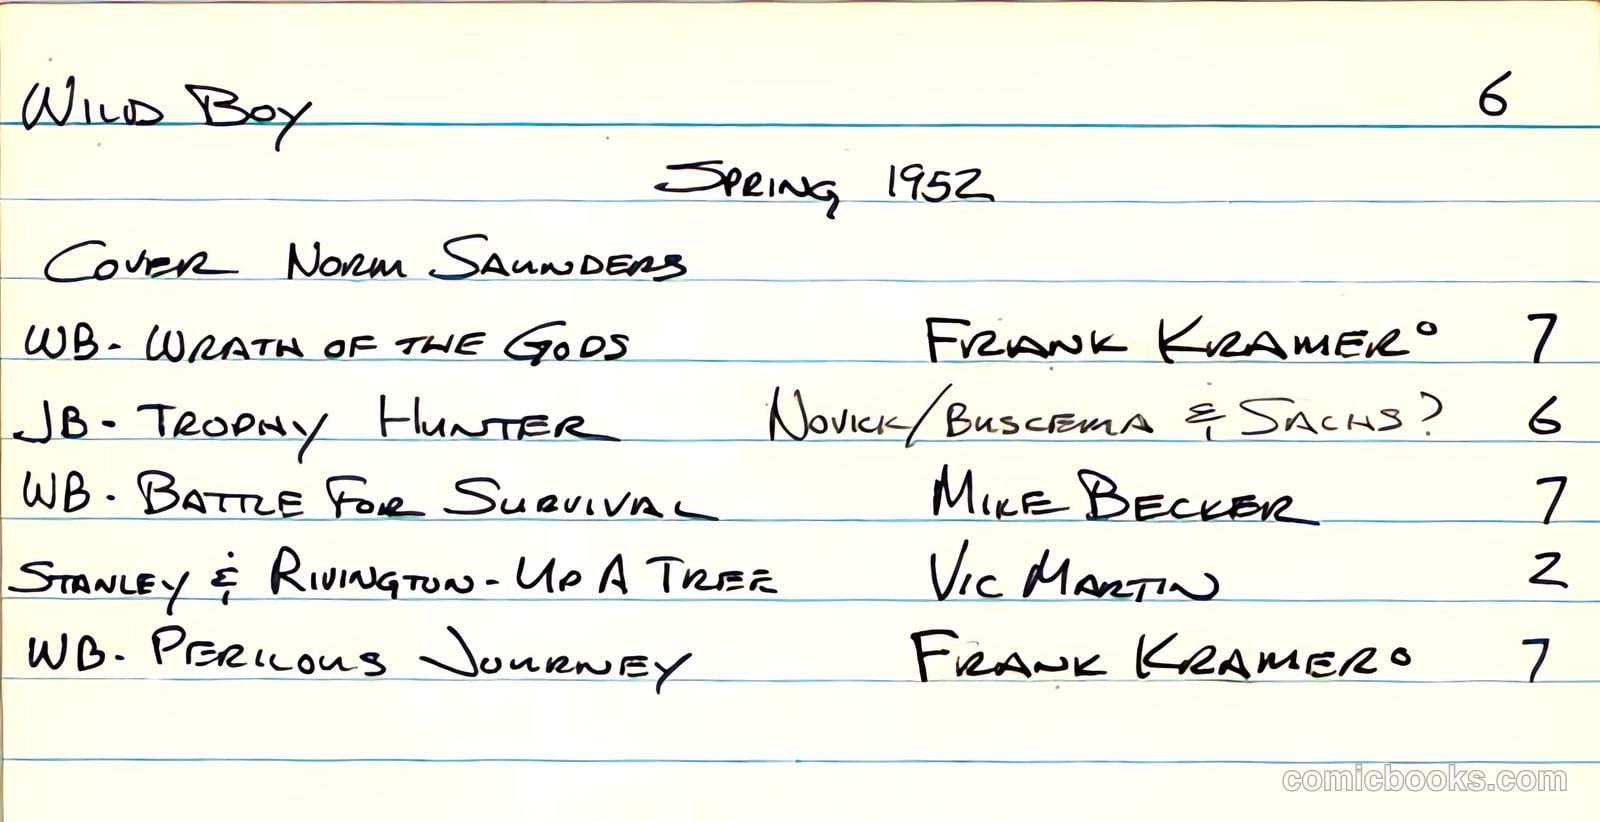 WILD BOY 6
SPRING 1952
COVER NORM SAUNDERS
WB- WRATH OF THE GODS FRANK KRAMER° 7
JB- TROPHY HUNTER NOVICK/BUSCEMA & SACHS? 6
WB- BATTLE FOR SURVIVAL MIKE BECKER 7
STANLEY & RIVINGTON- UP A TREE VIC MARTIN 2
WB- PERILOUS JOURNEY FRANK KRAMER° 7
comicbooks.com